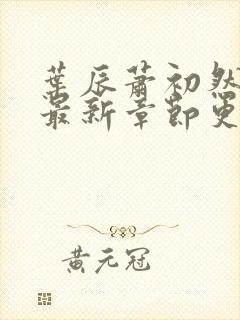 葉辰蕭初然
最新章節更
黃元冠